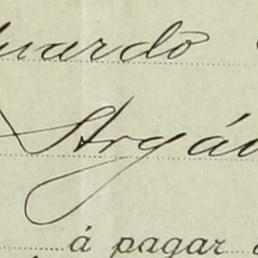 uardo
Argá
á pagar